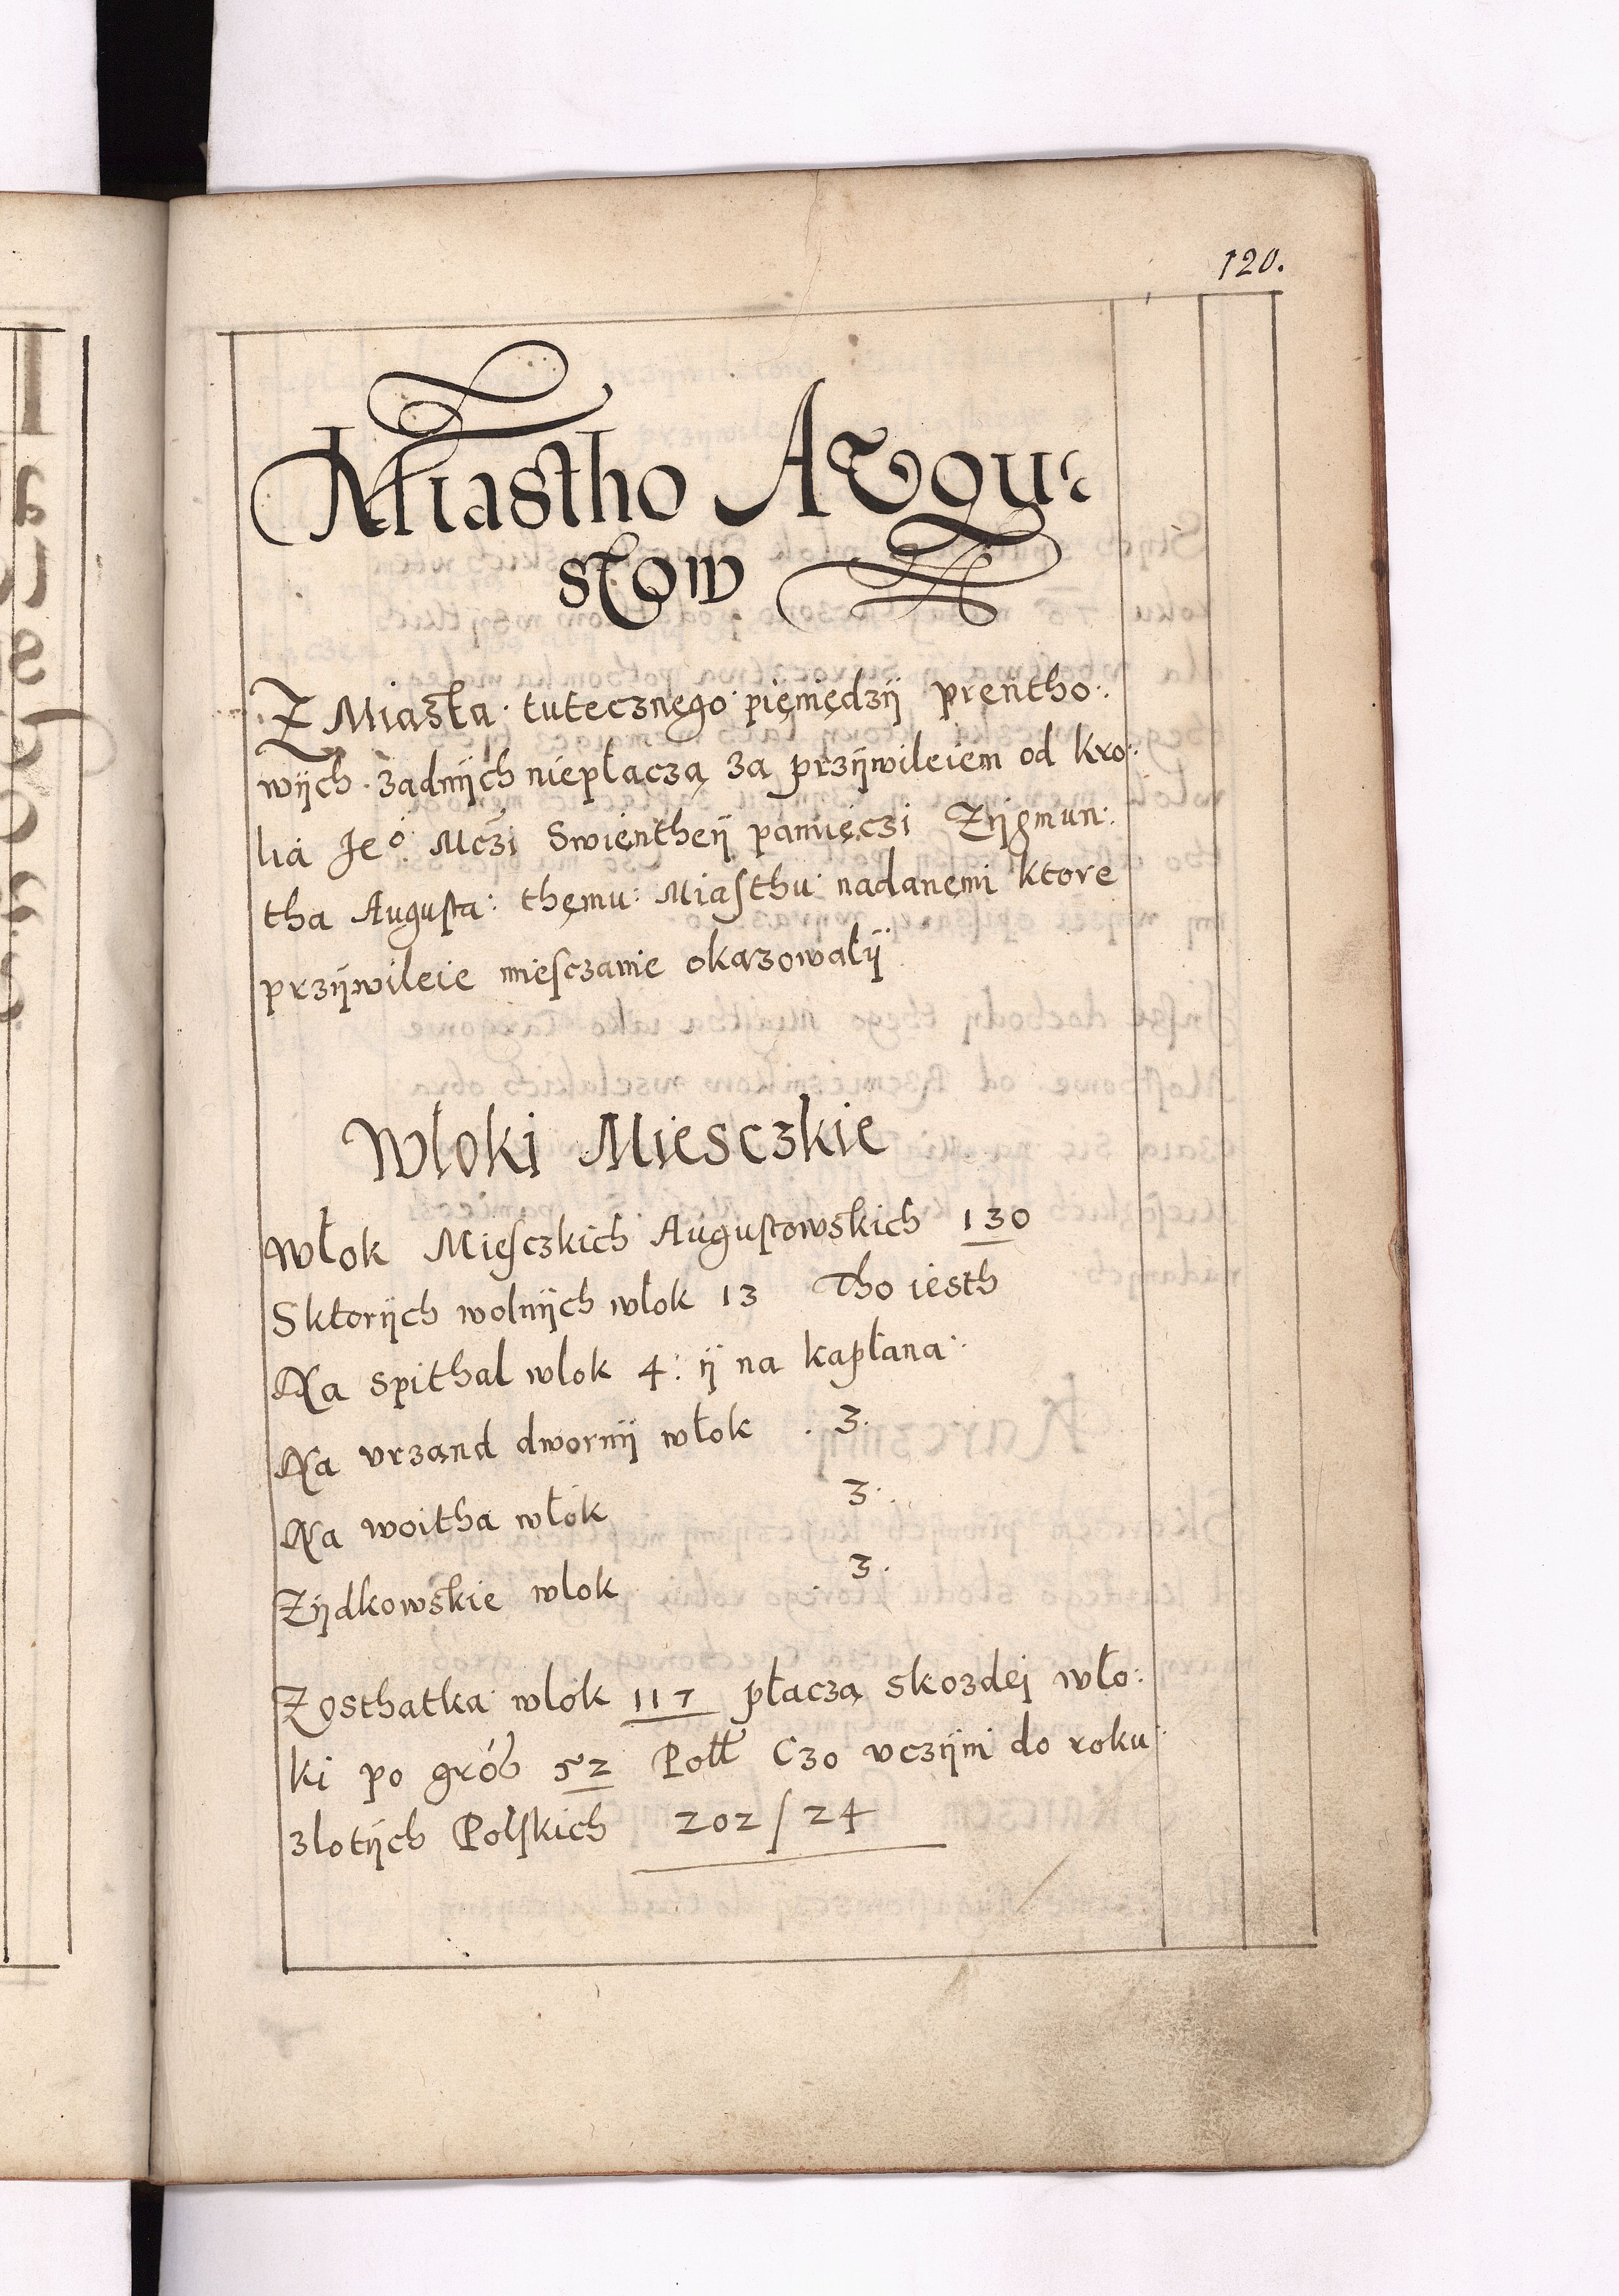 120.
Miastho Avgu:
stow
Z Miasta tutecznęgo pięmiędzÿ prentho:
wÿch zadnÿch niepłaczą za przÿwileiem od kro:
lia Jeº Mczi Swientheÿ pamięczi Zÿgmun:
tha Augusta: thęmu: Miasthu nadanęmi ktore
przÿwileie miesczanie okazowałÿ
Włoki Miesczkie
Włok Miesczkich Augustowskich 130
Sktorÿch wolnÿch włok 13 Tho iesth
Na spithal wlok 4: ÿ na kapłana
Na vrzand dwornÿ włok 3.
Na woitha włok 3.
Zÿdkowskie wlok 3.
Zosthatka wlok 117 płaczą skozdej wło:
ki po gróß 52 Poll Czo vczÿni do roku
zlotÿch Polskich 202/24